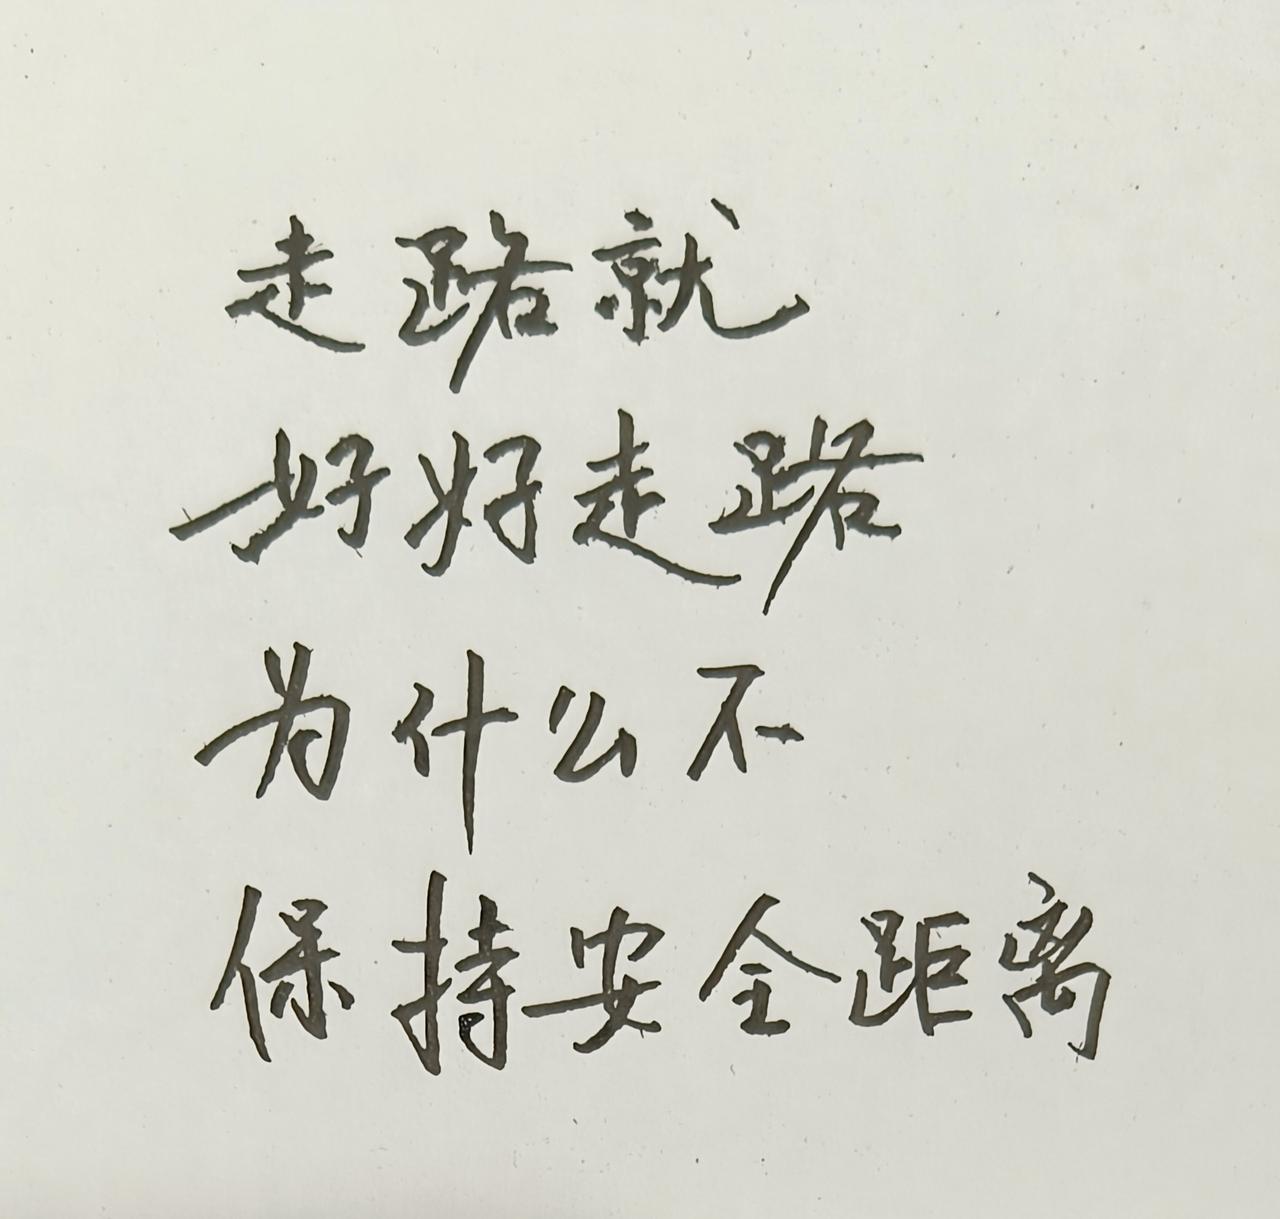 走路就
好好走路
为什么不
保持安全距离